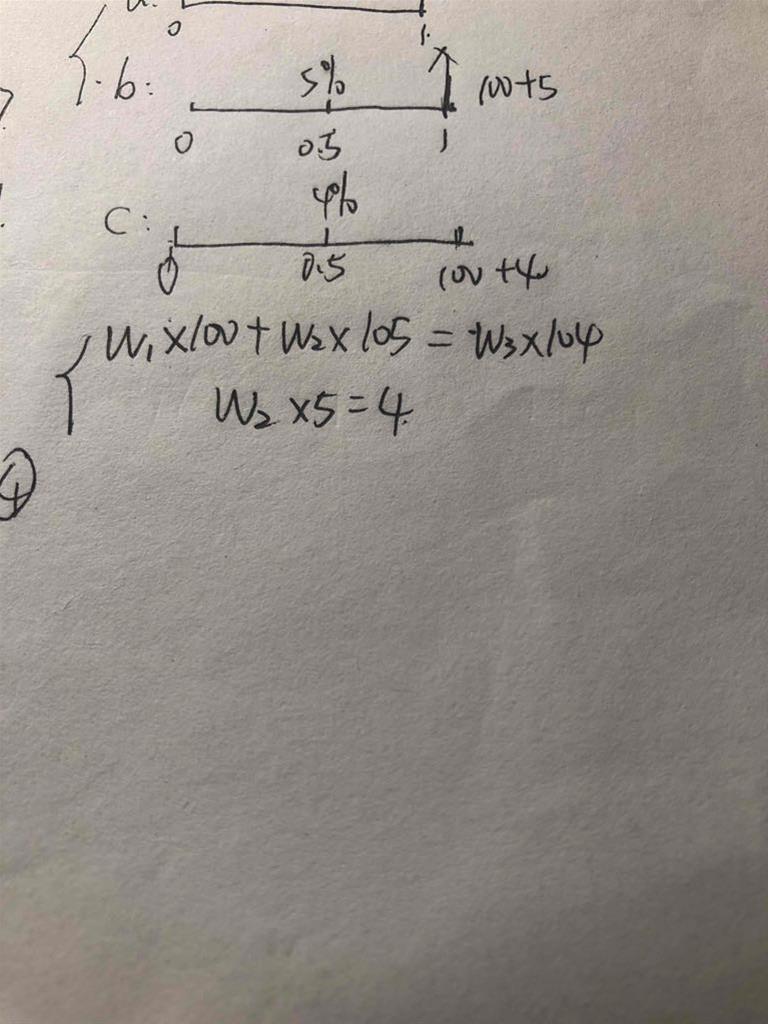 0 1.
b: 5% 100+5
0 0.5 1
C: 4%
0 0.5 100+4
W₁×100+W₂×105=W₃×104
W₂×5=4.